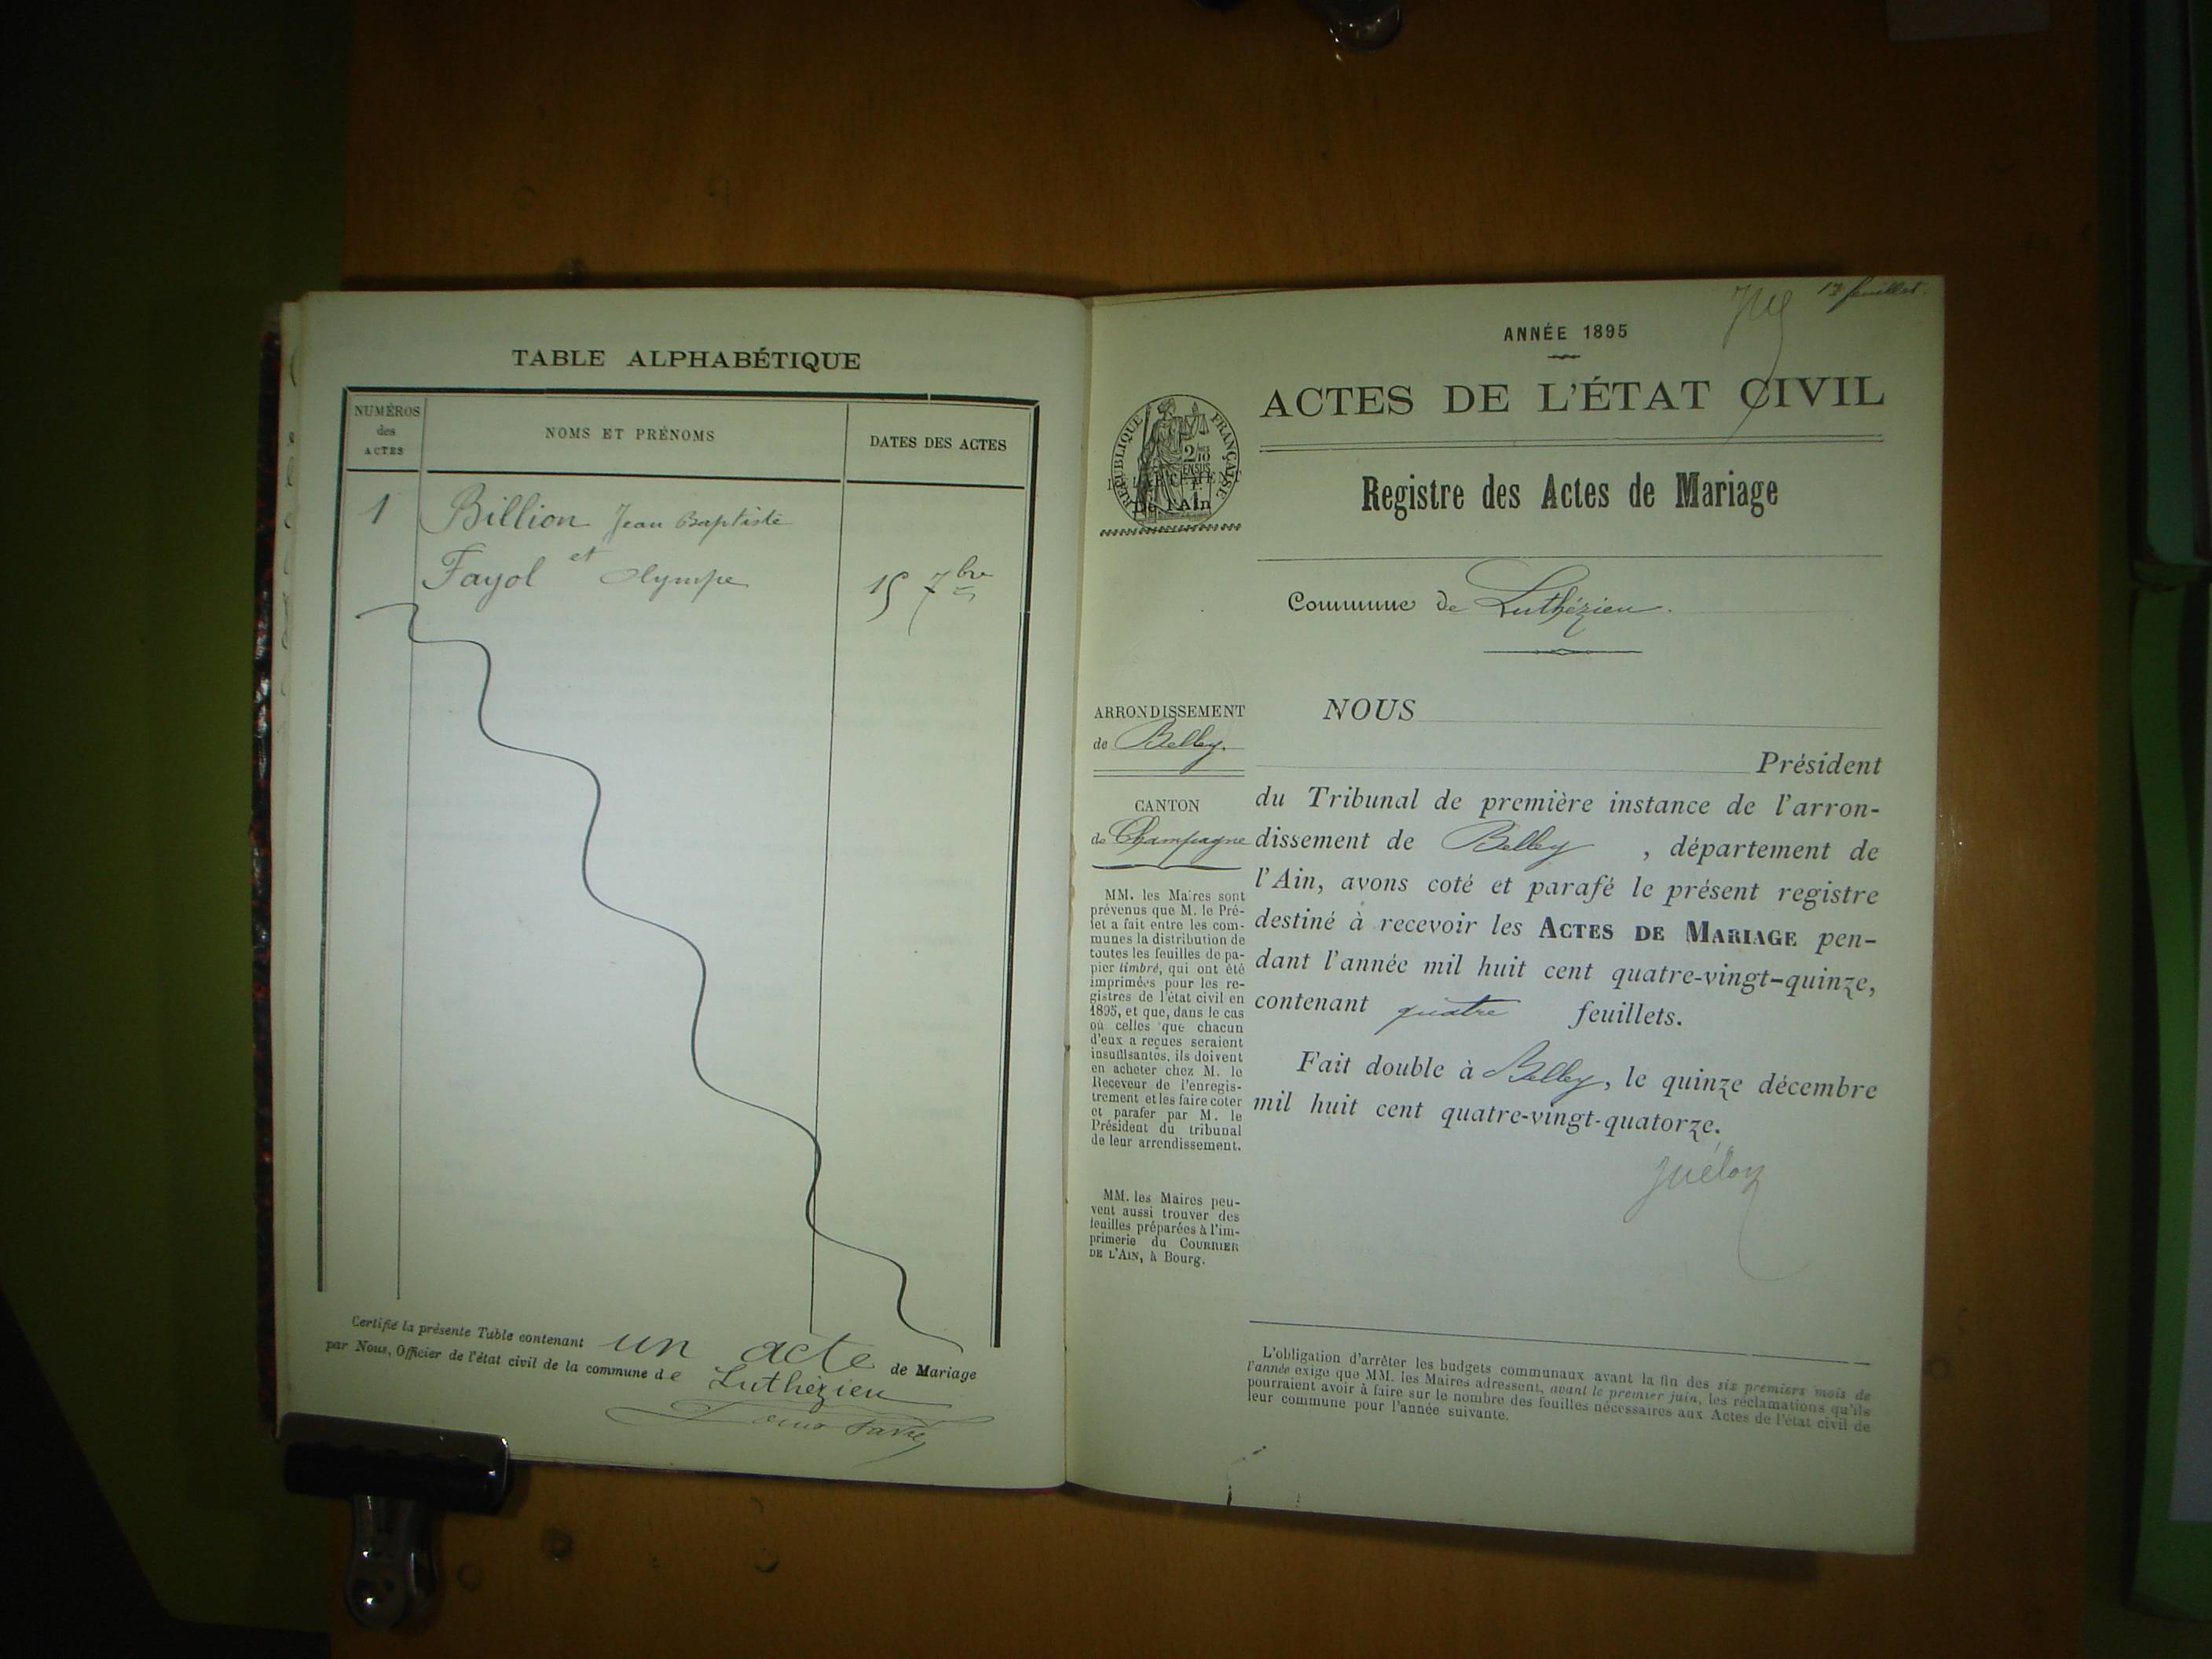 TABLE ALPHABÉTIQUE
NUMÉROS
des
ACTES
NOMS ET PRÉNOMS
DATES DES ACTES
1 Billion Jean Baptiste
et
Fayol Olympe 15 7bre
Certifié la présente Table contenant un acte de Mariage
par Nous, Officier de l'état civil de la commune de Luthézieu
Favre
1er feuillet.
ANNÉE 1895
ACTES DE L'ÉTAT CIVIL
RÉPUBLIQUE FRANÇAISE
De l'Ain
Registre des Actes de Mariage
Commune de Luthézieu.
ARRONDISSEMENT
de Belley.
CANTON
de Champagne
MM. les Maires sont
prévenus que M. le Pré-
fet a fait entre les com-
munes la distribution de
toutes les feuilles de pa-
pier timbré, qui ont été
imprimées pour les re-
gistres de l'état civil en
1895, et que, dans le cas
où celles que chacun
d'eux a reçues seraient
insuffisantes, ils doivent
en acheter chez M. le
Receveur de l'enregis-
trement et les faire coter
et parafer par M. le
Président du tribunal
de leur arrondissement.
MM. les Maires peu-
vent aussi trouver des
feuilles préparées à l'im-
primerie du COURRIER
DE L'AIN, à Bourg.
NOUS
Président
du Tribunal de première instance de l'arron-
dissement de Belley, département de
l'Ain, avons coté et parafé le présent registre
destiné à recevoir les ACTES DE MARIAGE pen-
dant l'année mil huit cent quatre-vingt-quinze,
contenant quatre feuillets.
Fait double à Belley, le quinze décembre
mil huit cent quatre-vingt-quatorze.
L'obligation d'arrêter les budgets communaux avant la fin des six premiers mois de
l'année exige que MM. les Maires adressent, avant le premier juin, les réclamations qu'ils
pourraient avoir à faire sur le nombre des feuilles nécessaires aux Actes de l'état civil de
leur commune pour l'année suivante.